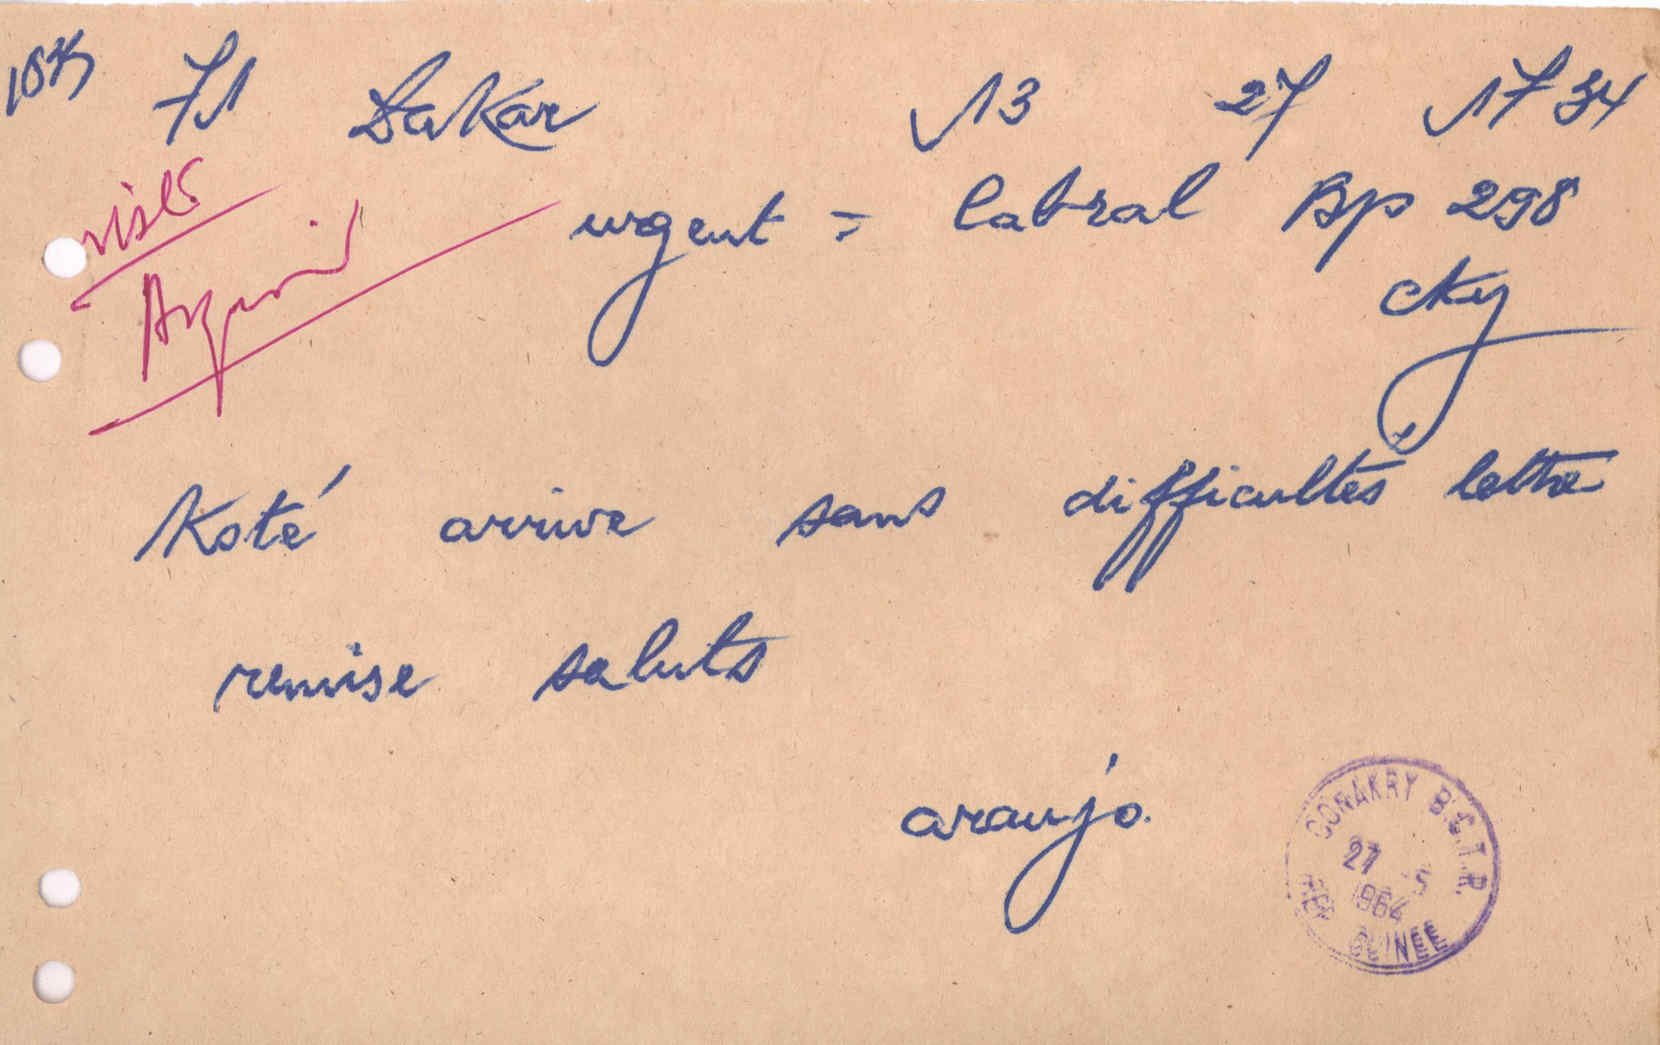 71 Dakar 13 27 1734
urgent = Cabral Bp 298
cky
Koté arrive sans difficultés lettre
remise saluts
araujo.
CONAKRY B.C.T.R.
27 5
1964
REP GUINEE